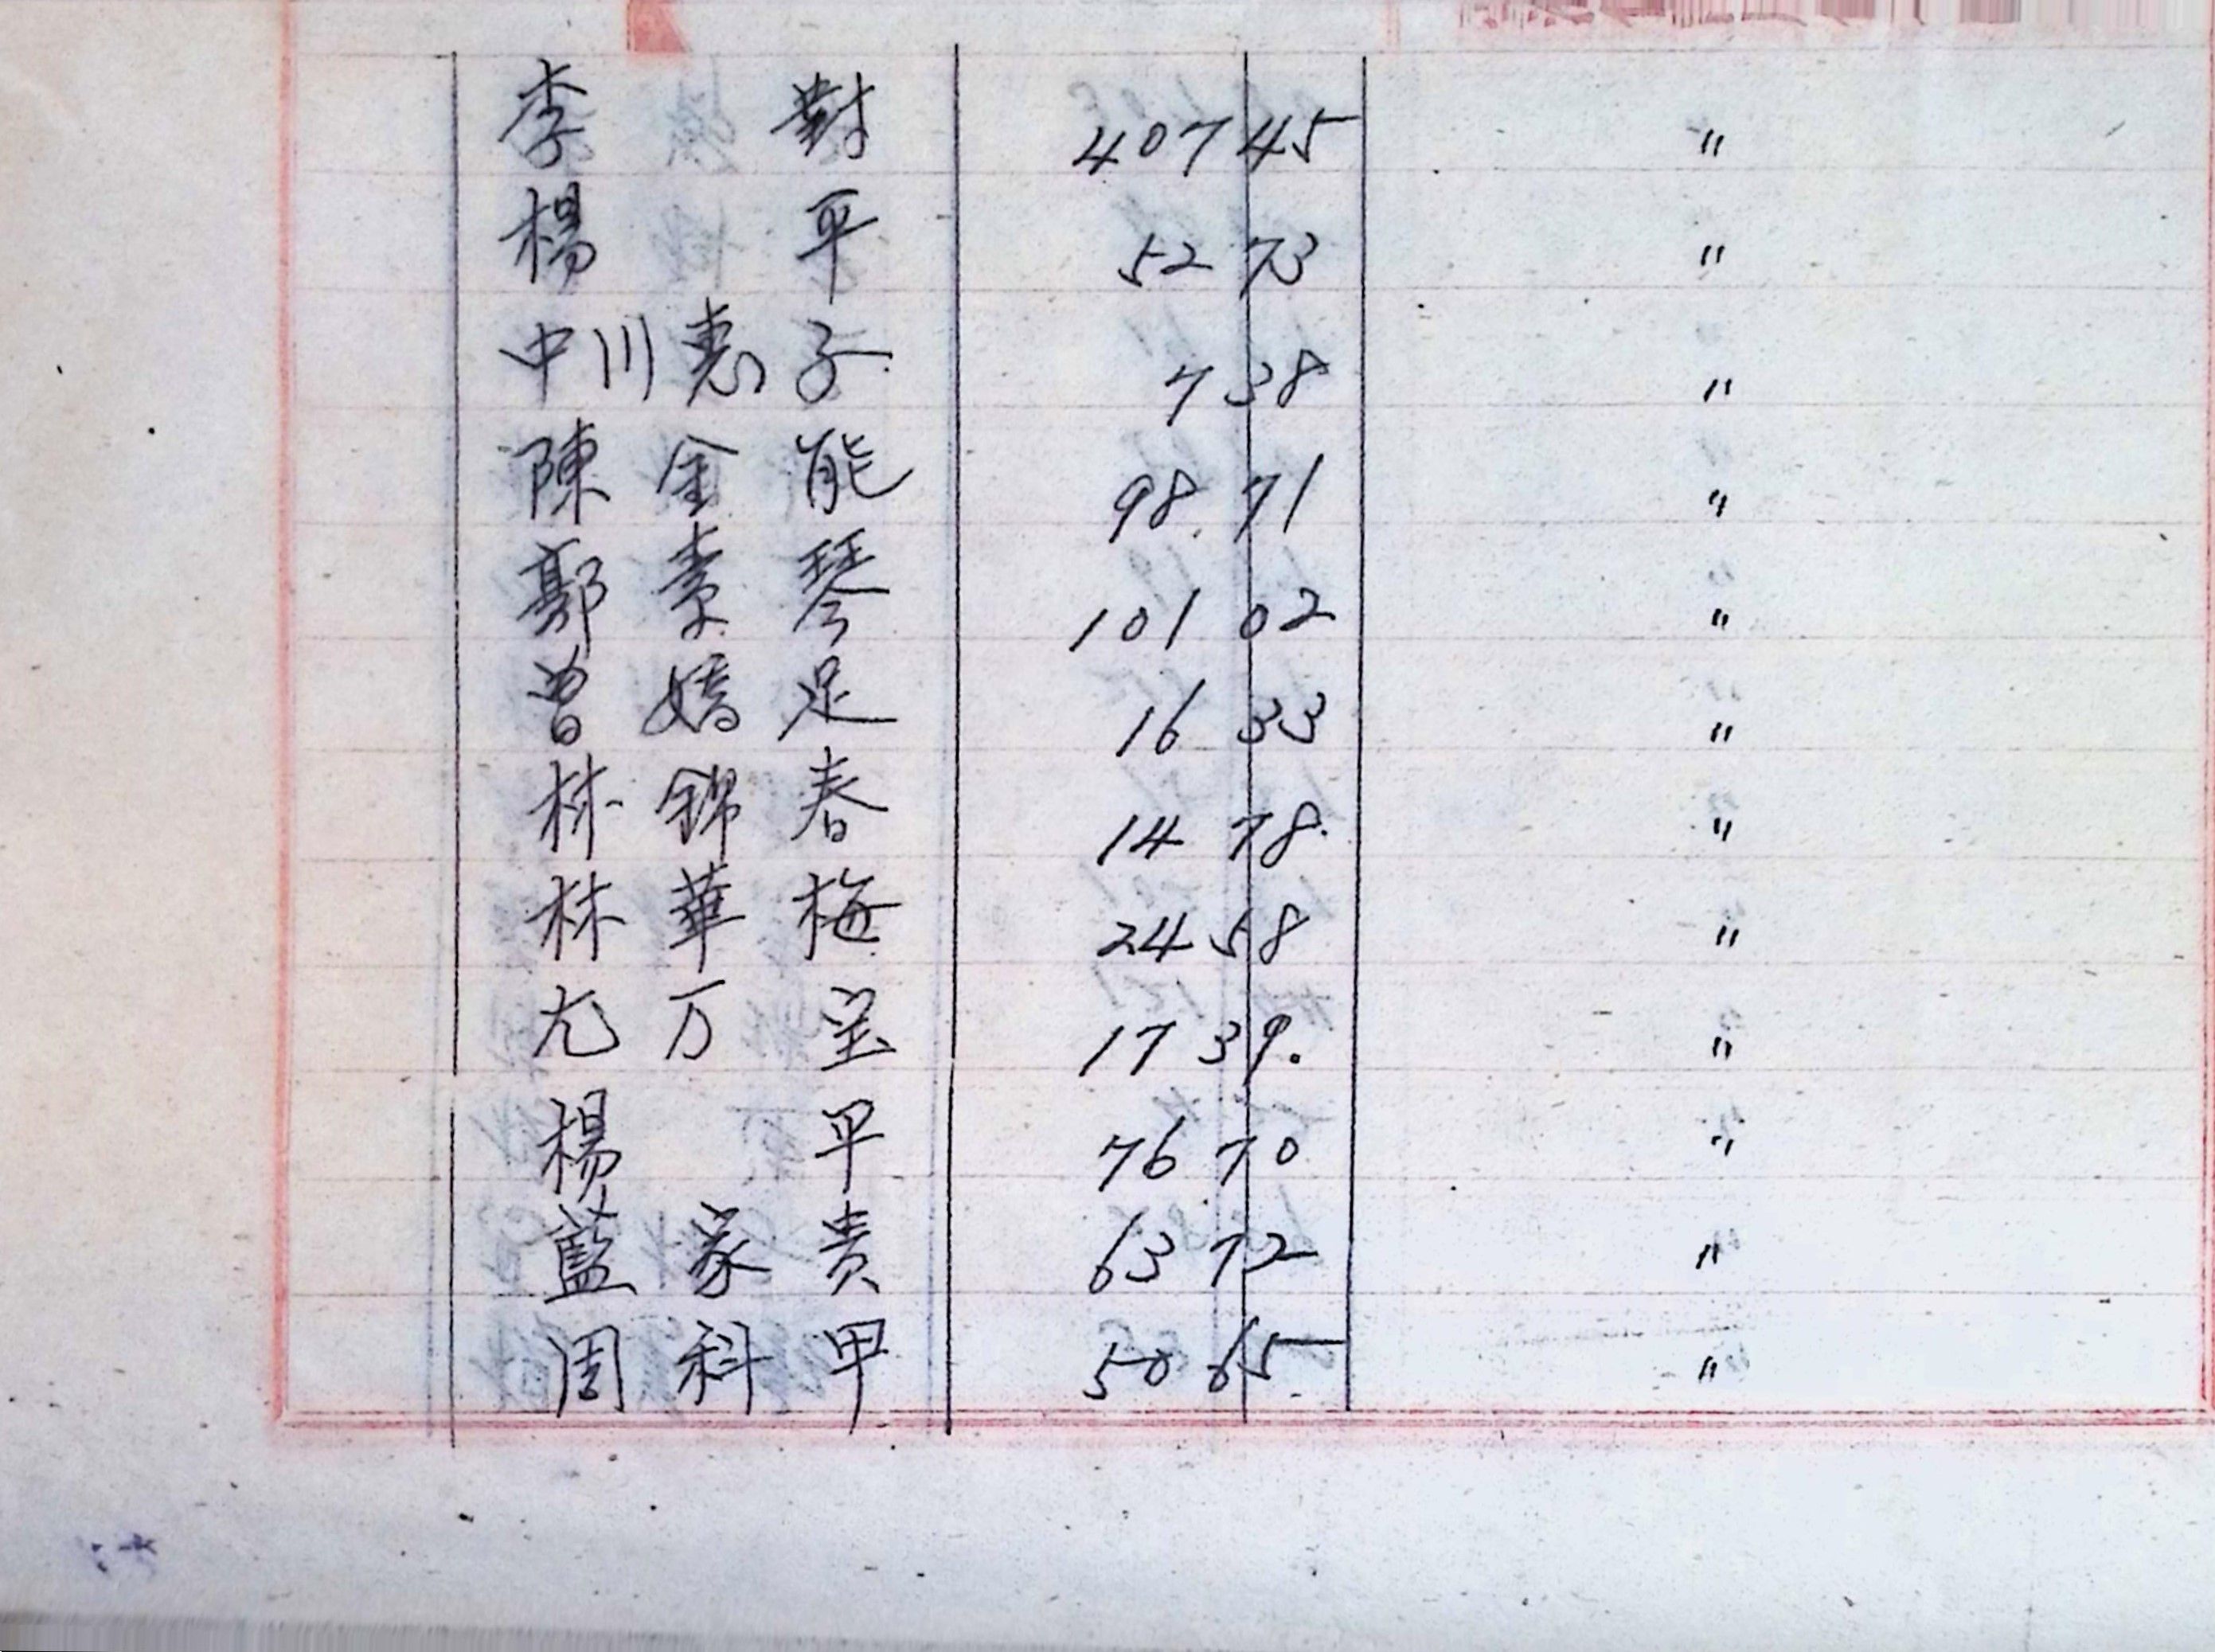 李 對 407 45 〃
楊 平 52 73 〃
中川惠子 7 38 〃
陳金能 98.71 〃
鄭素琴 101 02 〃
曾嬌足 16 33 〃
林錦春 14 78. 〃
林華梅 24 58 〃
尤万宝 17 39. 〃
楊 甲 76 70 〃
藍家貴 63 72 〃
周科甲 50 65 〃